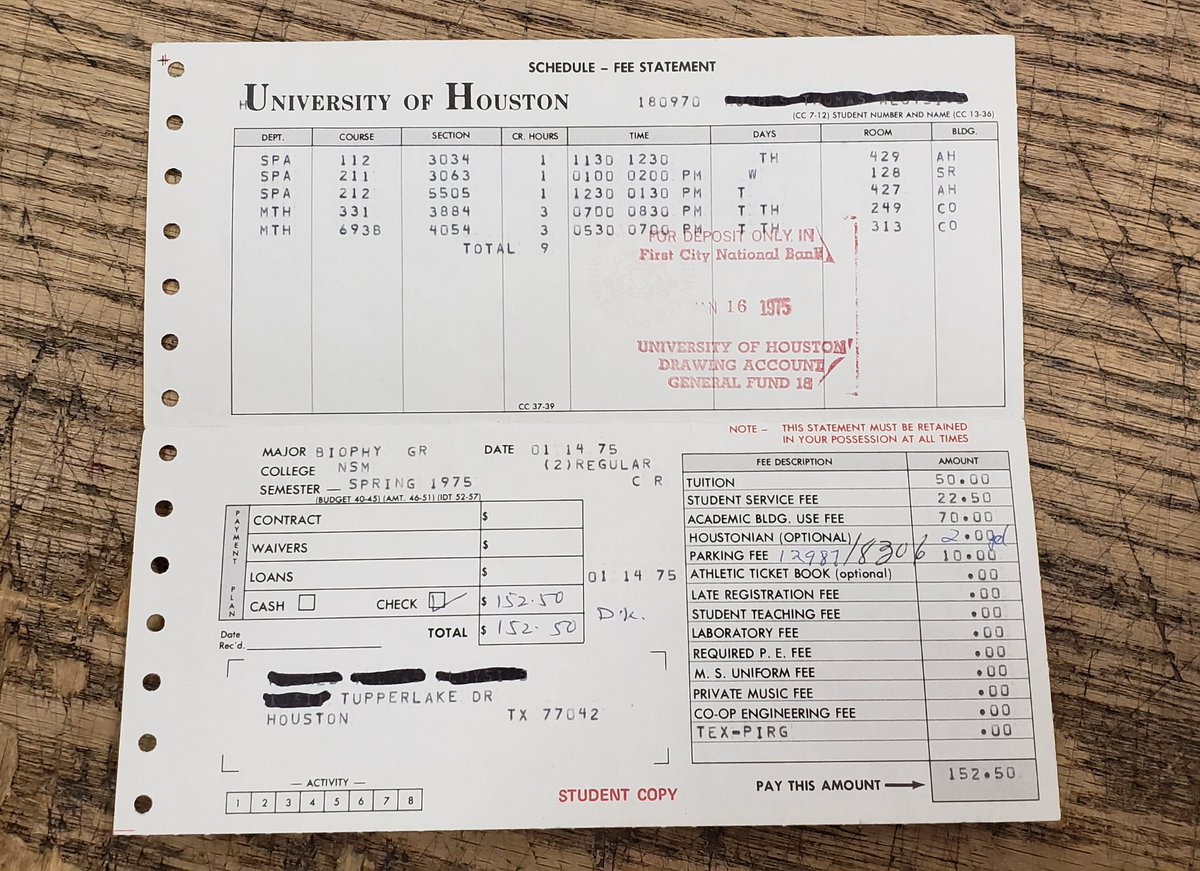 SCHEDULE – FEE STATEMENT
UNIVERSITY OF HOUSTON
180970
(CC 7-12) STUDENT NUMBER AND NAME (CC 13-36)
DEPT. COURSE SECTION CR. HOURS TIME DAYS ROOM BLDG.
SPA 112 3034 1 1130 1230 TH 429 AH
SPA 211 3063 1 0100 0200 PM W 128 SR
SPA 212 5505 1 1230 0130 PM T 427 AH
MTH 331 3884 3 0700 0830 PM T TH 249 CO
MTH 693B 4054 3 0530 0700 PM T TH 313 CO
TOTAL 9
FOR DEPOSIT ONLY IN
First City National Bank
16 1975
UNIVERSITY OF HOUSTON
DRAWING ACCOUNT
GENERAL FUND 18
CC 37-39
NOTE – THIS STATEMENT MUST BE RETAINED
IN YOUR POSSESSION AT ALL TIMES
MAJOR BIOPHY GR DATE 01 14 75
COLLEGE NSM (2)REGULAR
SEMESTER – SPRING 1975 C R
(BUDGET 40-45) (AMT. 46-51) (IDT 52-57)
PAYMENT PLAN
CONTRACT $
WAIVERS $
LOANS $
01 14 75
CASH CHECK $ 152.50
TOTAL $ 152.50
Date
Rec'd.
TUPPERLAKE DR
HOUSTON TX 77042
— ACTIVITY —
1 2 3 4 5 6 7 8
STUDENT COPY
FEE DESCRIPTION AMOUNT
TUITION 50.00
STUDENT SERVICE FEE 22.50
ACADEMIC BLDG. USE FEE 70.00
HOUSTONIAN (OPTIONAL) 2.00
PARKING FEE 12987/8306 10.00
ATHLETIC TICKET BOOK (optional) .00
LATE REGISTRATION FEE .00
STUDENT TEACHING FEE .00
LABORATORY FEE .00
REQUIRED P. E. FEE .00
M. S. UNIFORM FEE .00
PRIVATE MUSIC FEE .00
CO-OP ENGINEERING FEE .00
TEX-PIRG .00
PAY THIS AMOUNT 152.50